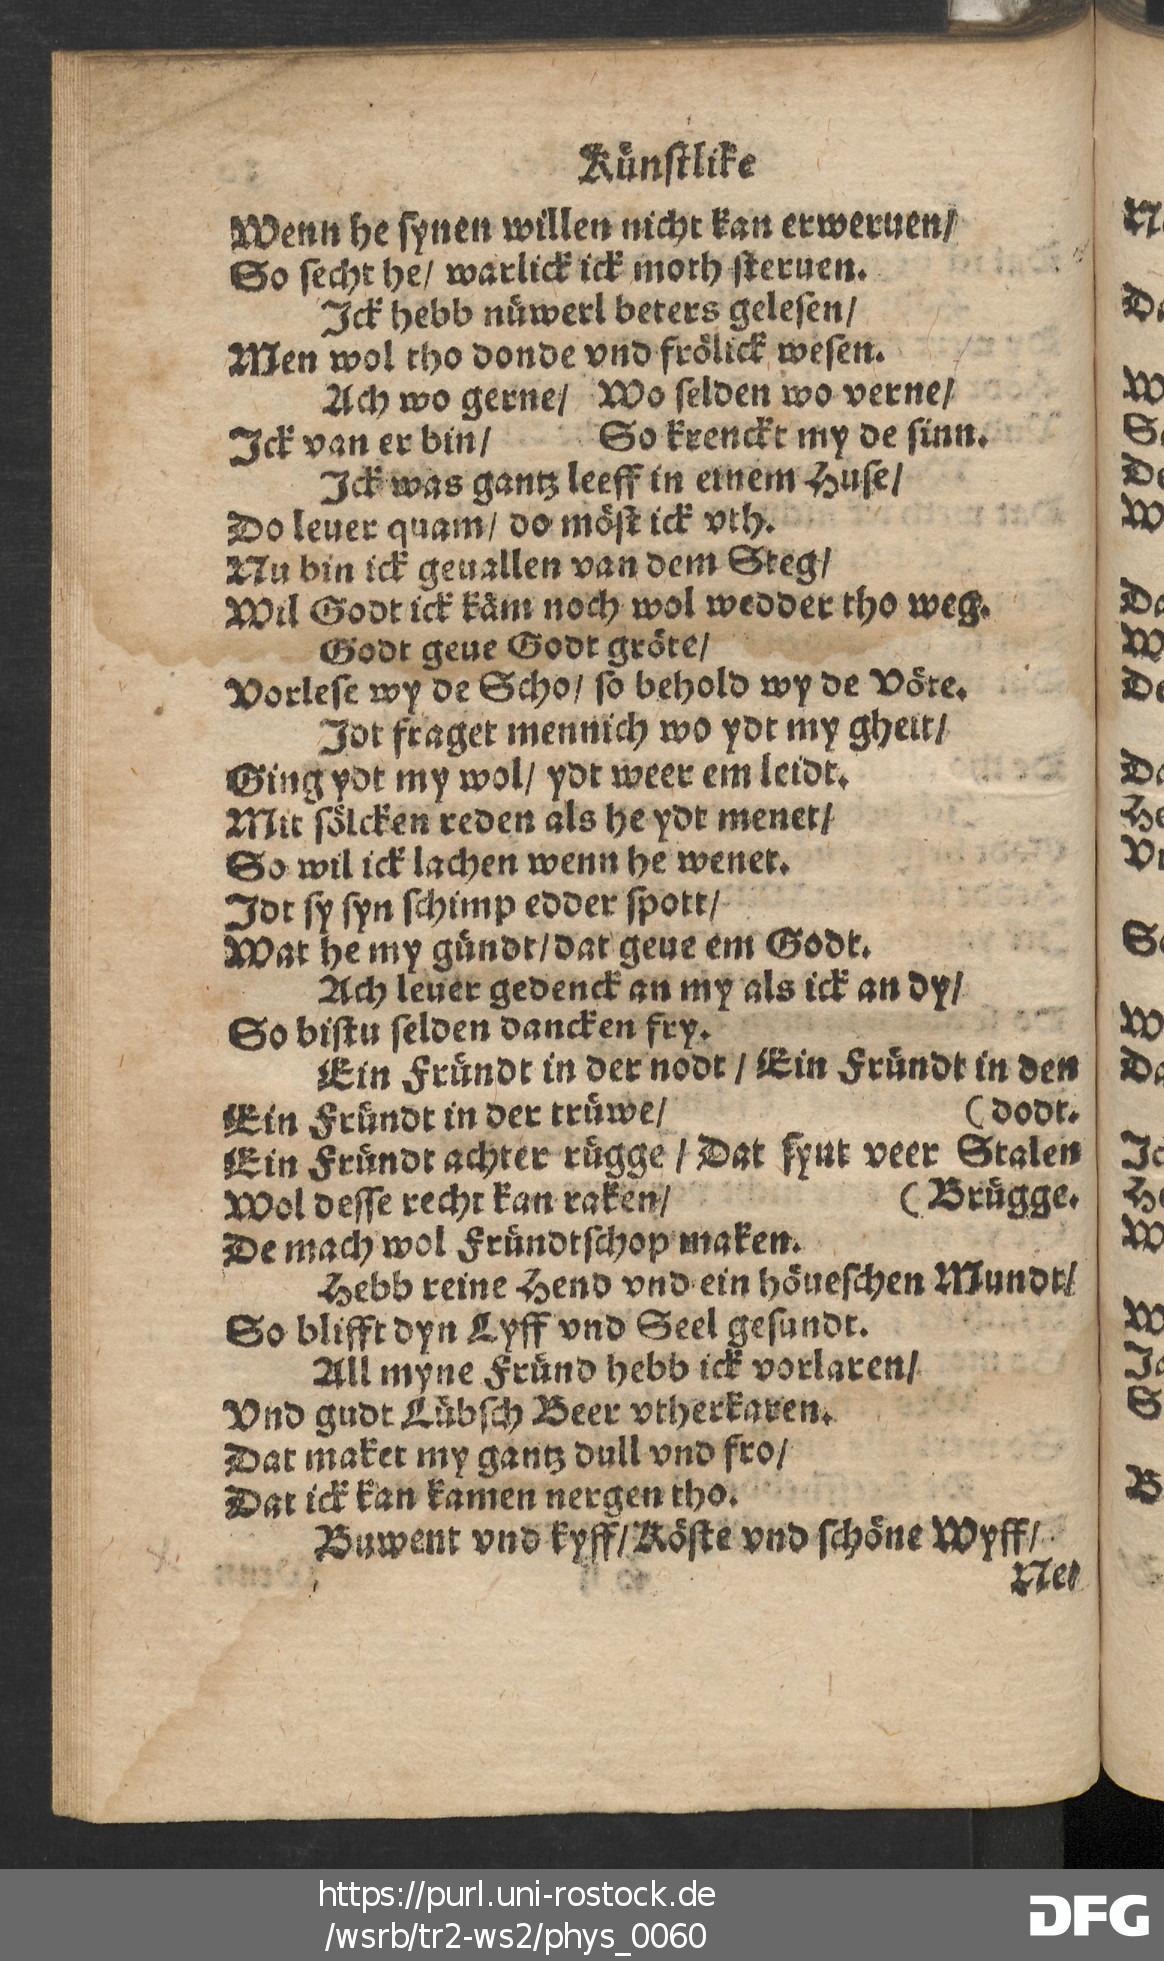 Künſtlike
Wenn he ſynen willen nicht kan erweruen/
So ſecht he/ warlick ick moth ſteruen.
Ick hebb nüwerl beters geleſen/
Men wol tho donde vnd frölick weſen.
Ach wo gerne/ Wo ſelden wo verne/
Ick van er bin/ So krenckt my de ſinn.
Ick was gantz leeff in einem Huſe/
Do leuer quam/ do möſt ick vth.
Nu bin ick geuallen van dem Steg/
Wil Godt ick käm noch wol wedder tho weg.
Godt geue Godt gröte/
Vorleſe wy de Scho/ ſo behold wy de Vöte.
Idt fraget mennich wo ydt my gheit/
Ging ydt my wol/ ydt weer em leidt.
Mit ſölcken reden als he ydt menet/
So wil ick lachen wenn he wenet.
Idt ſy ſyn ſchimp edder ſpott/
Wat he my gündt/ dat geue em Godt.
Ach leuer gedenck an my als ick an dy/
So biſtu ſelden dancken fry.
Ein Fründt in der nodt / Ein Fründt in den
Ein Fründt in der trüwe/ ( dodt.
Ein Fründt achter rügge / Dat ſynt veer Stalen
Wol deſſe recht kan raken/ ( Brügge.
De mach wol Fründtſchop maken.
Hebb reine Hend vnd ein höueſchen Mundt/
So blifft dyn Lyff vnd Seel geſundt.
All myne Fründ hebb ick vorlaren/
Vnd gudt Lübſch Beer vtherkaren.
Dat maket my gantz dull vnd fro/
Dat ick kan kamen nergen tho.
Buwent vnd kyff/ Köſte vnd ſchöne Wyff/
Nei
https://purl.uni-rostock.de
/wsrb/tr2-ws2/phys_0060
DFG